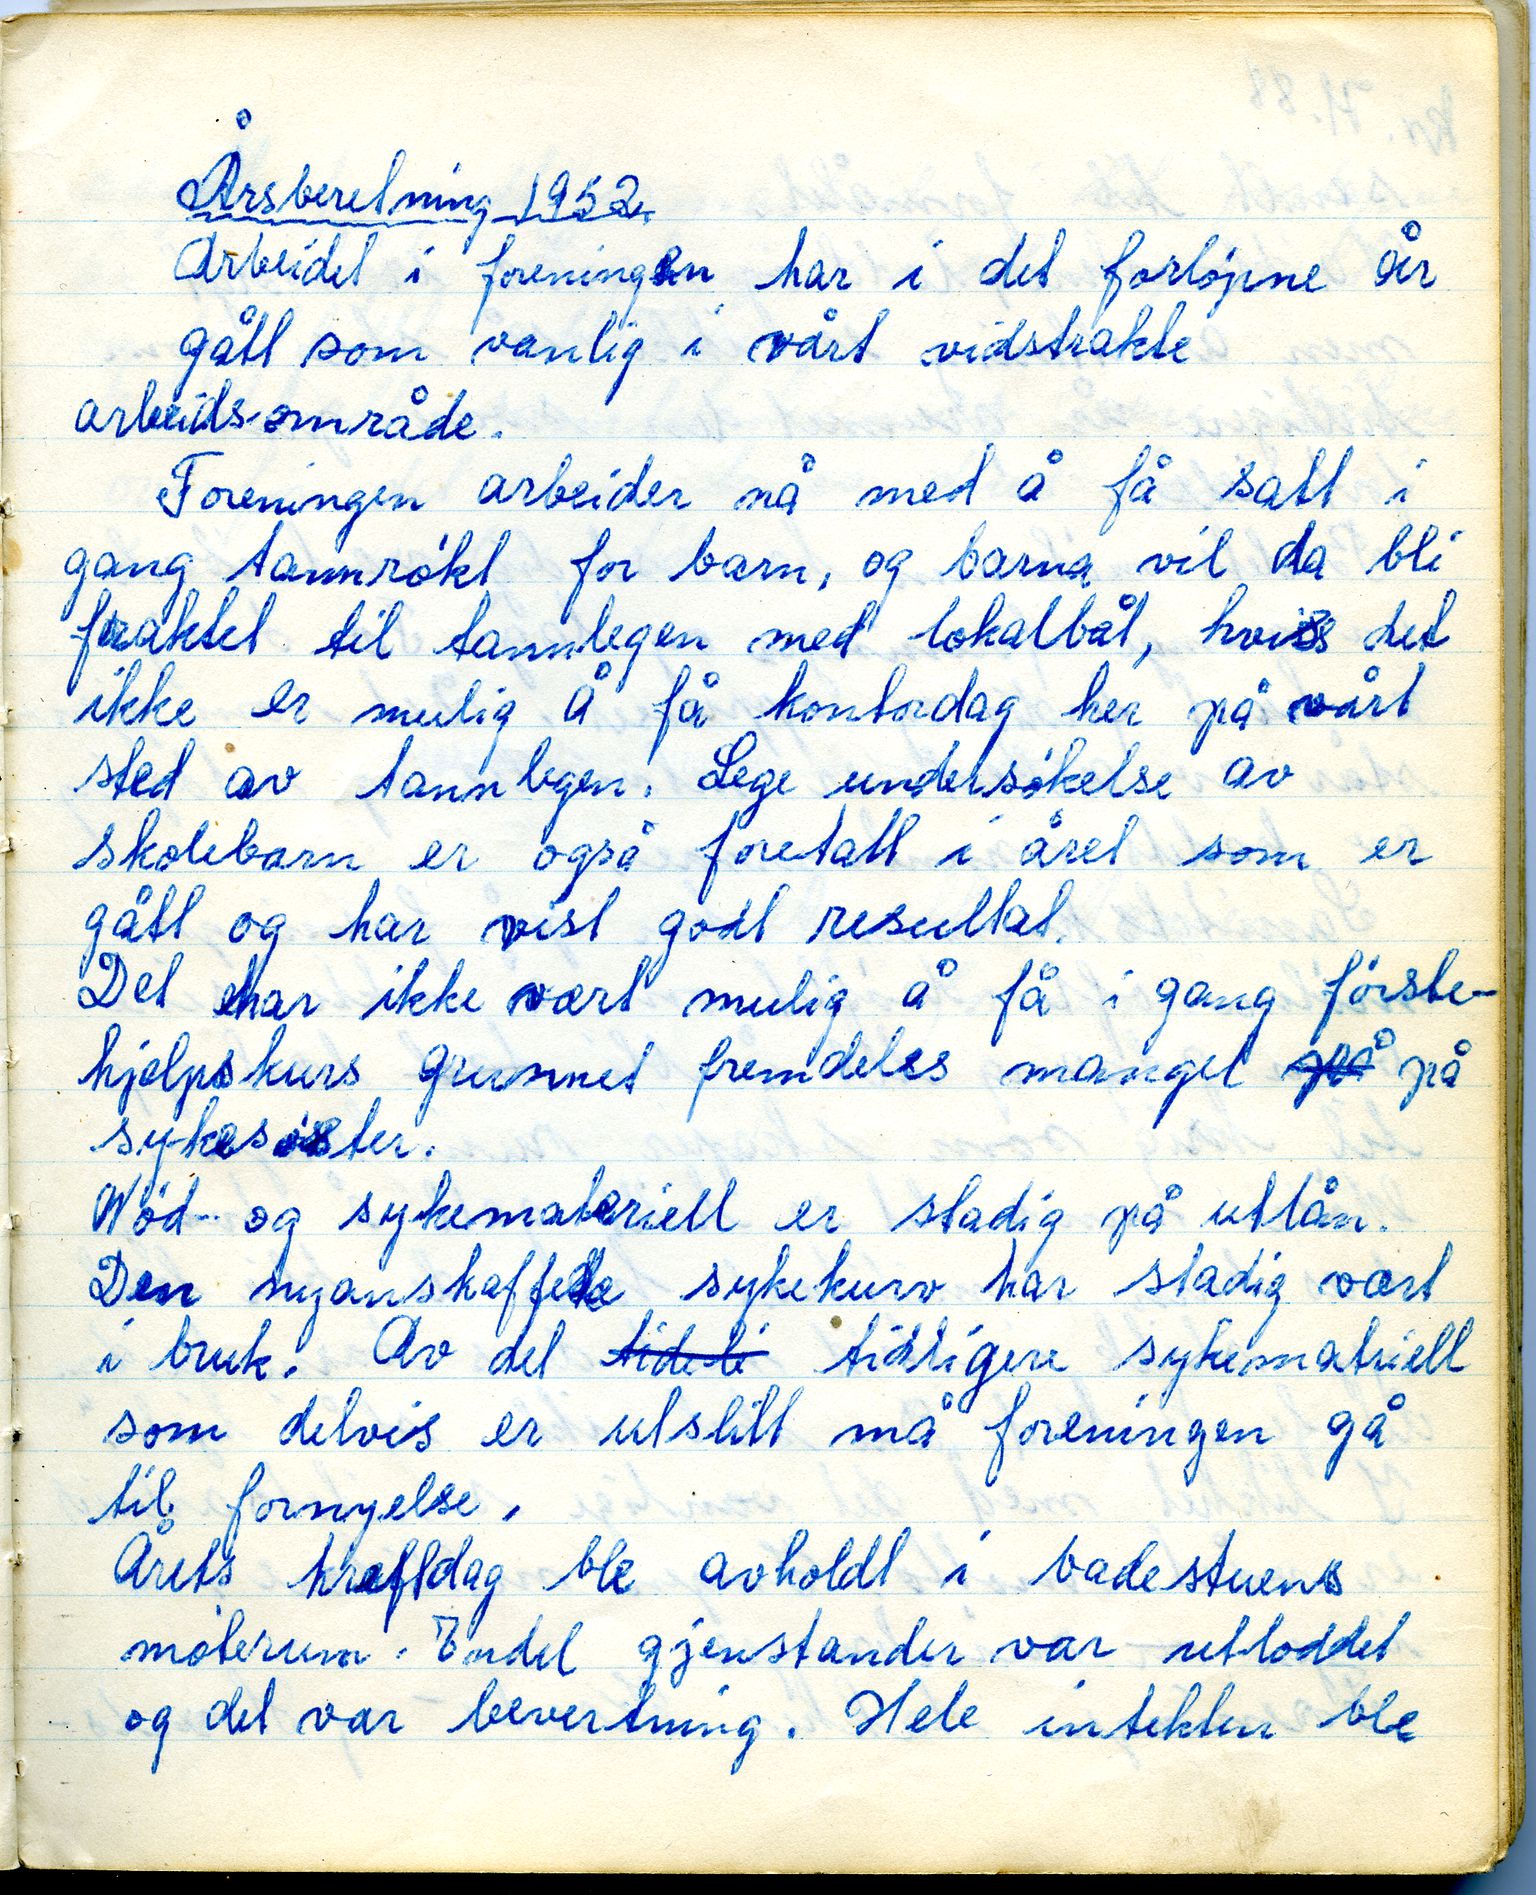 Årsberetning 1952.
Arbeidet i foreningen har i det forløpne år
gått som vanlig i vårt vidstrakte
arbeids-område.
Foreningen arbeider nå med å få satt i
gang tannrøkt for barn, og barna vil da bli
fraktet til tannlegen med lokalbåt, hviss det
ikke er mulig å få kontordag her på vårt
sted av tannlegen. Lege undersøkelse av
skolebarn er også foretatt i året som er
gått og har vist godt resultat.
Det har ikke vært mulig å få i gang første-
hjelpskurs grunnet fremdeles mangel på på
sykesøster.
Nød- og sykemateriell er stadig på utlån.
Den nyanskaffede sykekurv har stadig vært
i bruk. Av det tideli tidligere sykematriell
som delvis er utslitt må foreningen gå
til fornyelse.
Årets kreftdag ble avholdt i badestuens
møterum. Endel gjenstander var utloddet
og det var bevertning. Hele intekten ble